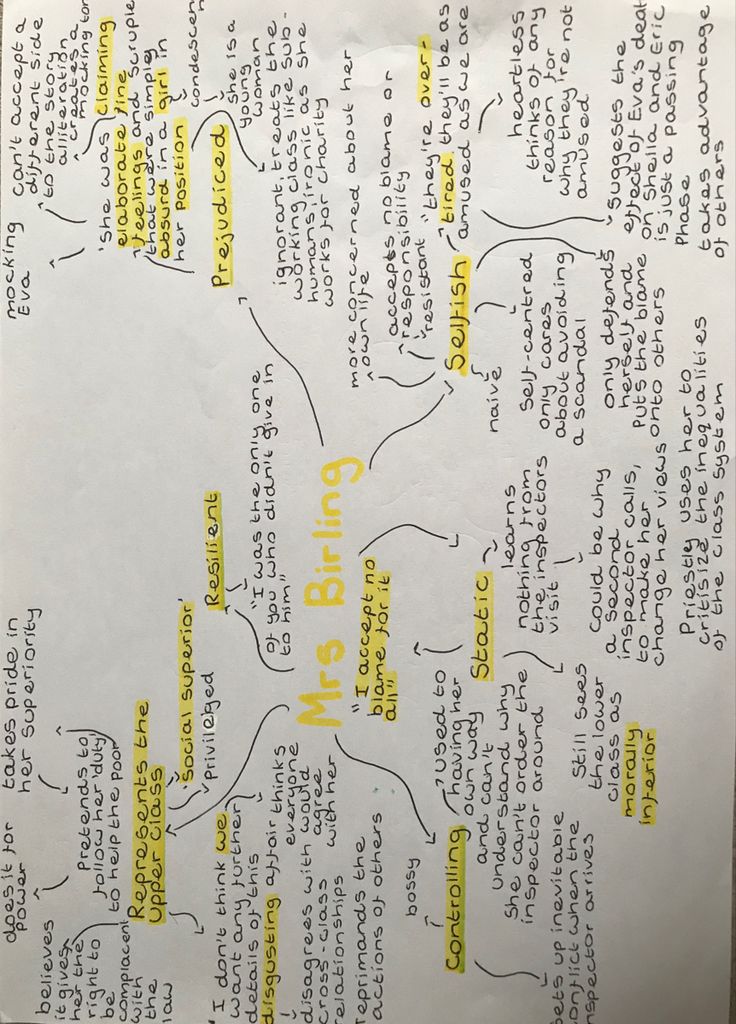 Mrs Birling
"I accept no
blame for it
all"
Represents the
upper class
'Social superior'
Privileged
Pretends to
follow her 'duty'
to help the poor
does it for
power
takes pride in
her superiority
believes
it gives
her the
right to
be
complacent
with
the
law
"I don't think we
want any further
details of this
disgusting affair
thinks
everyone
would
agree
with her
disagrees with
cross-class
relationships
reprimands the
actions of others
Resilient
"I was the only one
of you who didn't give in
to him"
Prejudiced
'She was claiming
elaborate fine
feelings and scruples
that were simply
absurd in a girl in
her position
mocking
Eva
can't accept a
different side
to the story
alliteration
creates a
mocking
she is a
young
woman
ignorant, treats the
working class like sub-
humans, ironic as she
works for charity
Selfish
more concerned about her
own life
accepts no blame or
responsibility
resistant
"they're over-
tired they'll be as
amused as we are
heartless
thinks of any
reason for
why they're not
amused
suggests the
effect of Eva's death
on Sheila and Eric
is just a passing
phase
takes advantage
of others
naive
Self-centred
only cares
about avoiding
a scandal
only defends
herself and
puts the blame
onto others
Static
learns
nothing from
the inspectors
visit
Could be why
a second
inspector calls,
to make her
change her views
Priestley uses her to
critisize the inequalities
of the class system
Still sees
the lower
class as
morally
inferior
Controlling
bossy
used to
having her
own way
and can't
understand why
she can't order the
inspector around
sets up inevitable
conflict when the
inspector arrives